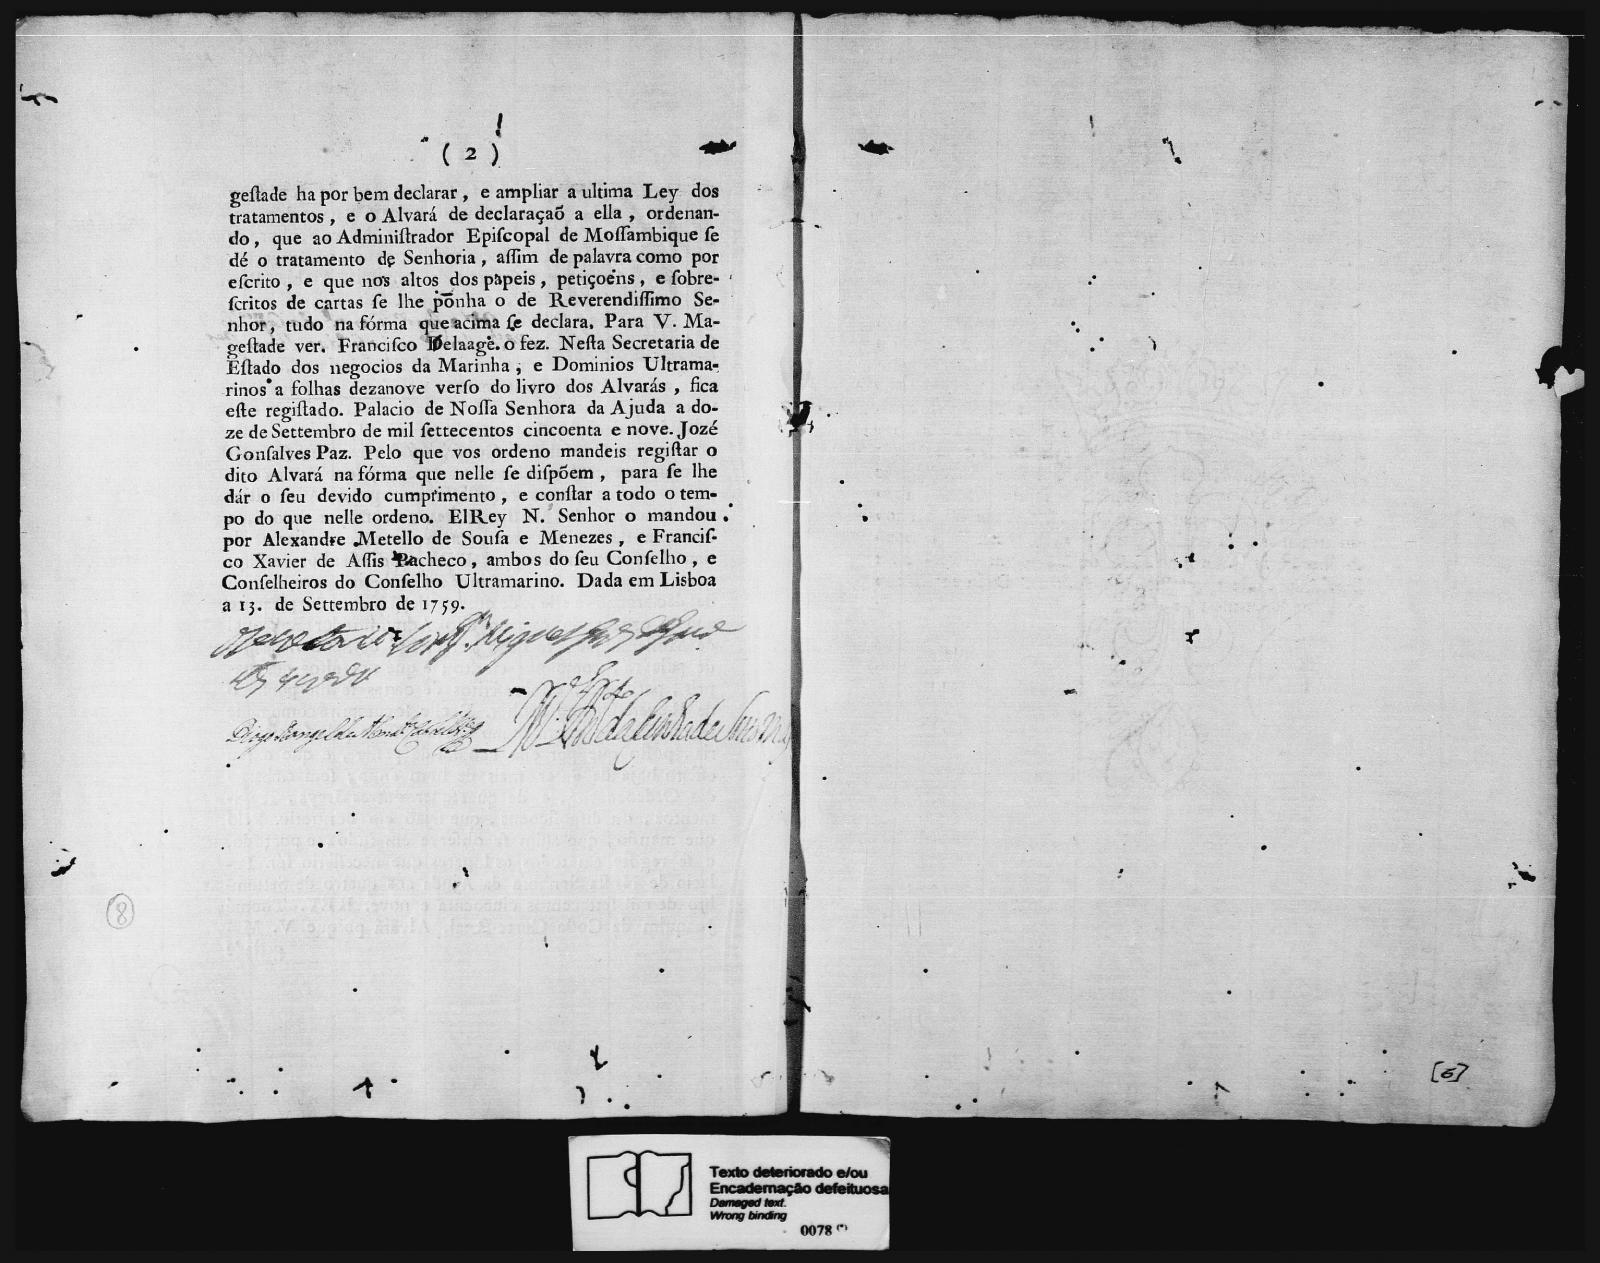 ( 2 )
geſtade ha por bem declarar, e ampliar a ultima Ley dos
tratamentos, e o Alvará de declaraçaõ a ella, ordenan-
do, que ao Adminiſtrador Epiſcopal de Moſſambique ſe
dé o tratamento de Senhoria, aſſim de palavra como por
eſcrito, e que nos altos dos papeis, petiçoens, e ſobre-
ſcritos de cartas ſe lhe põnha o de Reverendiſſimo Se-
nhor, tudo na fórma que acima ſe declara. Para V. Ma-
geſtade ver. Franciſco Delaage. o fez. Neſta Secretaria de
Eſtado dos negocios da Marinha, e Dominios Ultrama-
rinos a folhas dezanove verſo do livro dos Alvarás, fica
eſte regiſtado. Palacio de Noſſa Senhora da Ajuda a do-
ze de Settembro de mil ſettecentos cincoenta e nove. Jozé
Gonſalves Paz. Pelo que vos ordeno mandeis regiſtar o
dito Alvará na fórma que nelle ſe diſpõem, para ſe lhe
dár o ſeu devido cumprimento, e conſtar a todo o tem-
po do que nelle ordeno. ElRey N. Senhor o mandou
por Alexandre Metello de Souſa e Menezes, e Franciſ-
co Xavier de Aſſis Pacheco, ambos do ſeu Conſelho, e
Conſelheiros do Conſelho Ultramarino. Dada em Lisboa
a 13. de Settembro de 1759.
Diogo Rangel de
8
[6]
Texto deteriorado e/ou
Encadernação defeituosa
Damaged text.
Wrong binding
0078 (*)